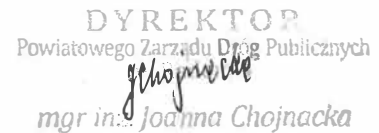 DYREKTOR
Powiatowego Zarządu Dróg Publicznych
JChojnacka
mgr inż. Joanna Chojnacka